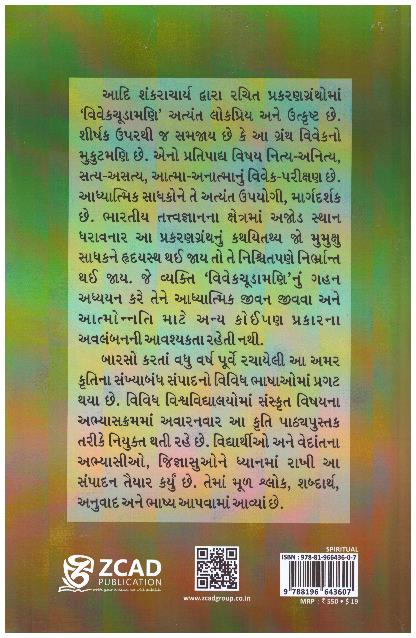 આદિ શંકરાચાર્ય દ્વારા રચિત પ્રકરણગ્રંથોમાં
‘વિવેકચૂડામણિ’ અત્યંત લોકપ્રિય અને ઉત્કૃષ્ટ છે.
શીર્ષક ઉપરથી જ સમજાય છે કે આ ગ્રંથ વિવેકનો
મુકુટમણિ છે. એનો પ્રતિપાદ્ય વિષય નિત્ય-અનિત્ય,
સત્ય-અસત્ય, આત્મા-અનાત્માનું વિવેક-પરીક્ષણ છે.
આધ્યાત્મિક સાધકોને તે અત્યંત ઉપયોગી, માર્ગદર્શક
છે. ભારતીય તત્ત્વજ્ઞાનના ક્ષેત્રમાં અજોડ સ્થાન
ધરાવનાર આ પ્રકરણગ્રંથનું કથયિતવ્ય જો મુમુક્ષુ
સાધકને હૃદયસ્થ થઈ જાય તો તે નિશ્ચિતપણે નિર્ભ્રાન્ત
થઈ જાય. જે વ્યક્તિ ‘વિવેકચૂડામણિ’નું ગહન
અધ્યયન કરે તેને આધ્યાત્મિક જીવન જીવવા અને
આત્મોન્નતિ માટે અન્ય કોઈપણ પ્રકારના
અવલંબનની આવશ્યકતા રહેતી નથી.
બારસો કરતાં વધુ વર્ષ પૂર્વે રચાયેલી આ અમર
કૃતિના સંખ્યાબંધ સંપાદનો વિવિધ ભાષાઓમાં પ્રગટ
થયા છે. વિવિધ વિશ્વવિદ્યાલયોમાં સંસ્કૃત વિષયના
અભ્યાસક્રમમાં અવારનવાર આ કૃતિ પાઠ્યપુસ્તક
તરીકે નિયુક્ત થતી રહે છે. વિદ્યાર્થીઓ અને વેદાંતના
અભ્યાસીઓ, જિજ્ઞાસુઓને ધ્યાનમાં રાખી આ
સંપાદન તૈયાર કર્યું છે. તેમાં મૂળ શ્લોક, શબ્દાર્થ,
અનુવાદ અને ભાષ્ય આપવામાં આવ્યાં છે.
SPIRITUAL
ISBN : 978-81-966436-0-7
ZCAD
PUBLICATION
www.zcadgroup.co.in
9 788196 643607
MRP : ₹ 550 • $ 19